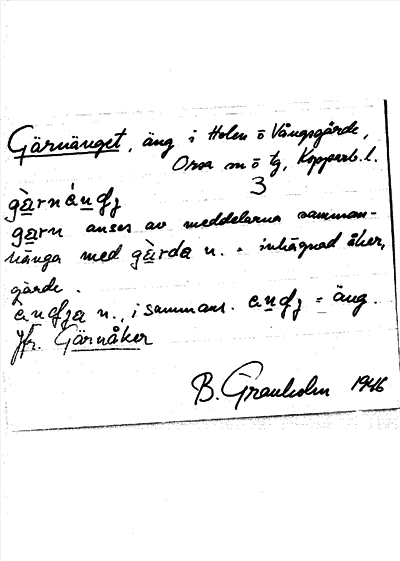 Gärnänget, äng i Holen ö Vångsgärde,
Orsa sn ö tg, Kopparb. l.
3
garn anses av meddelarna samman-
hänga med gàrda n. = inhägnad åker,
gärde.
n., i sammans. = äng.
Jfr. Gärnåker
B. Granholm 1946